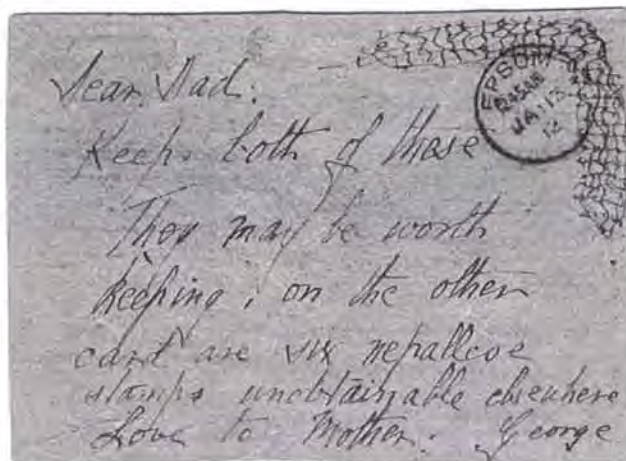 Dear Dad:
Keep both of those
They may be worth
keeping; on the other
card are six nepallese
stamps unobtainable elsewhere
Love to Mother. George
EPSOM
845AM
JA 13
12